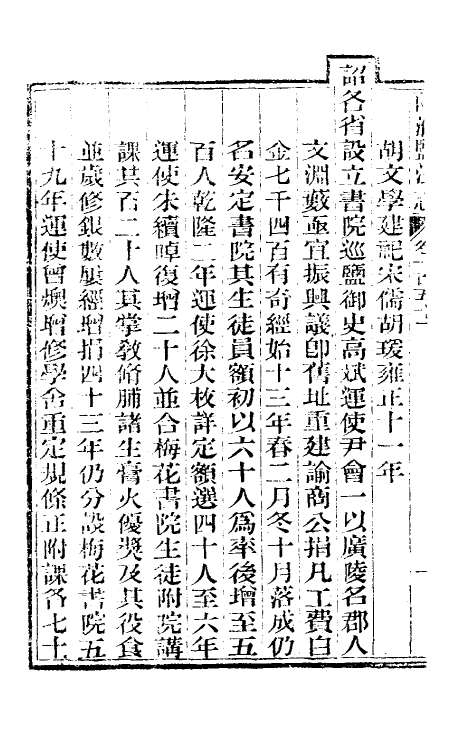 胡文學建記宋儒胡瑗雍正十一年
詔各省設立書院巡鹽御史高斌運使尹會一以廣陵名郡人
文淵藪亟宜振興議卽舊址重建諭商公捐凡工費白
金七千四百有奇經始十三年春二月冬十月落成仍
名安定書院其生徒員額初以六十人爲率後增至五
百人乾隆二年運使徐大枚詳定額選四十人至六年
運使朱續晫復增二十人並合梅花書院生徒附院講
課共百二十人其掌教脩脯諸生膏火優獎及其役食
並歲修銀數屢經增捐四十三年仍分設梅花書院五
十九年運使曾燠增修學舍重定規條正附課各七十